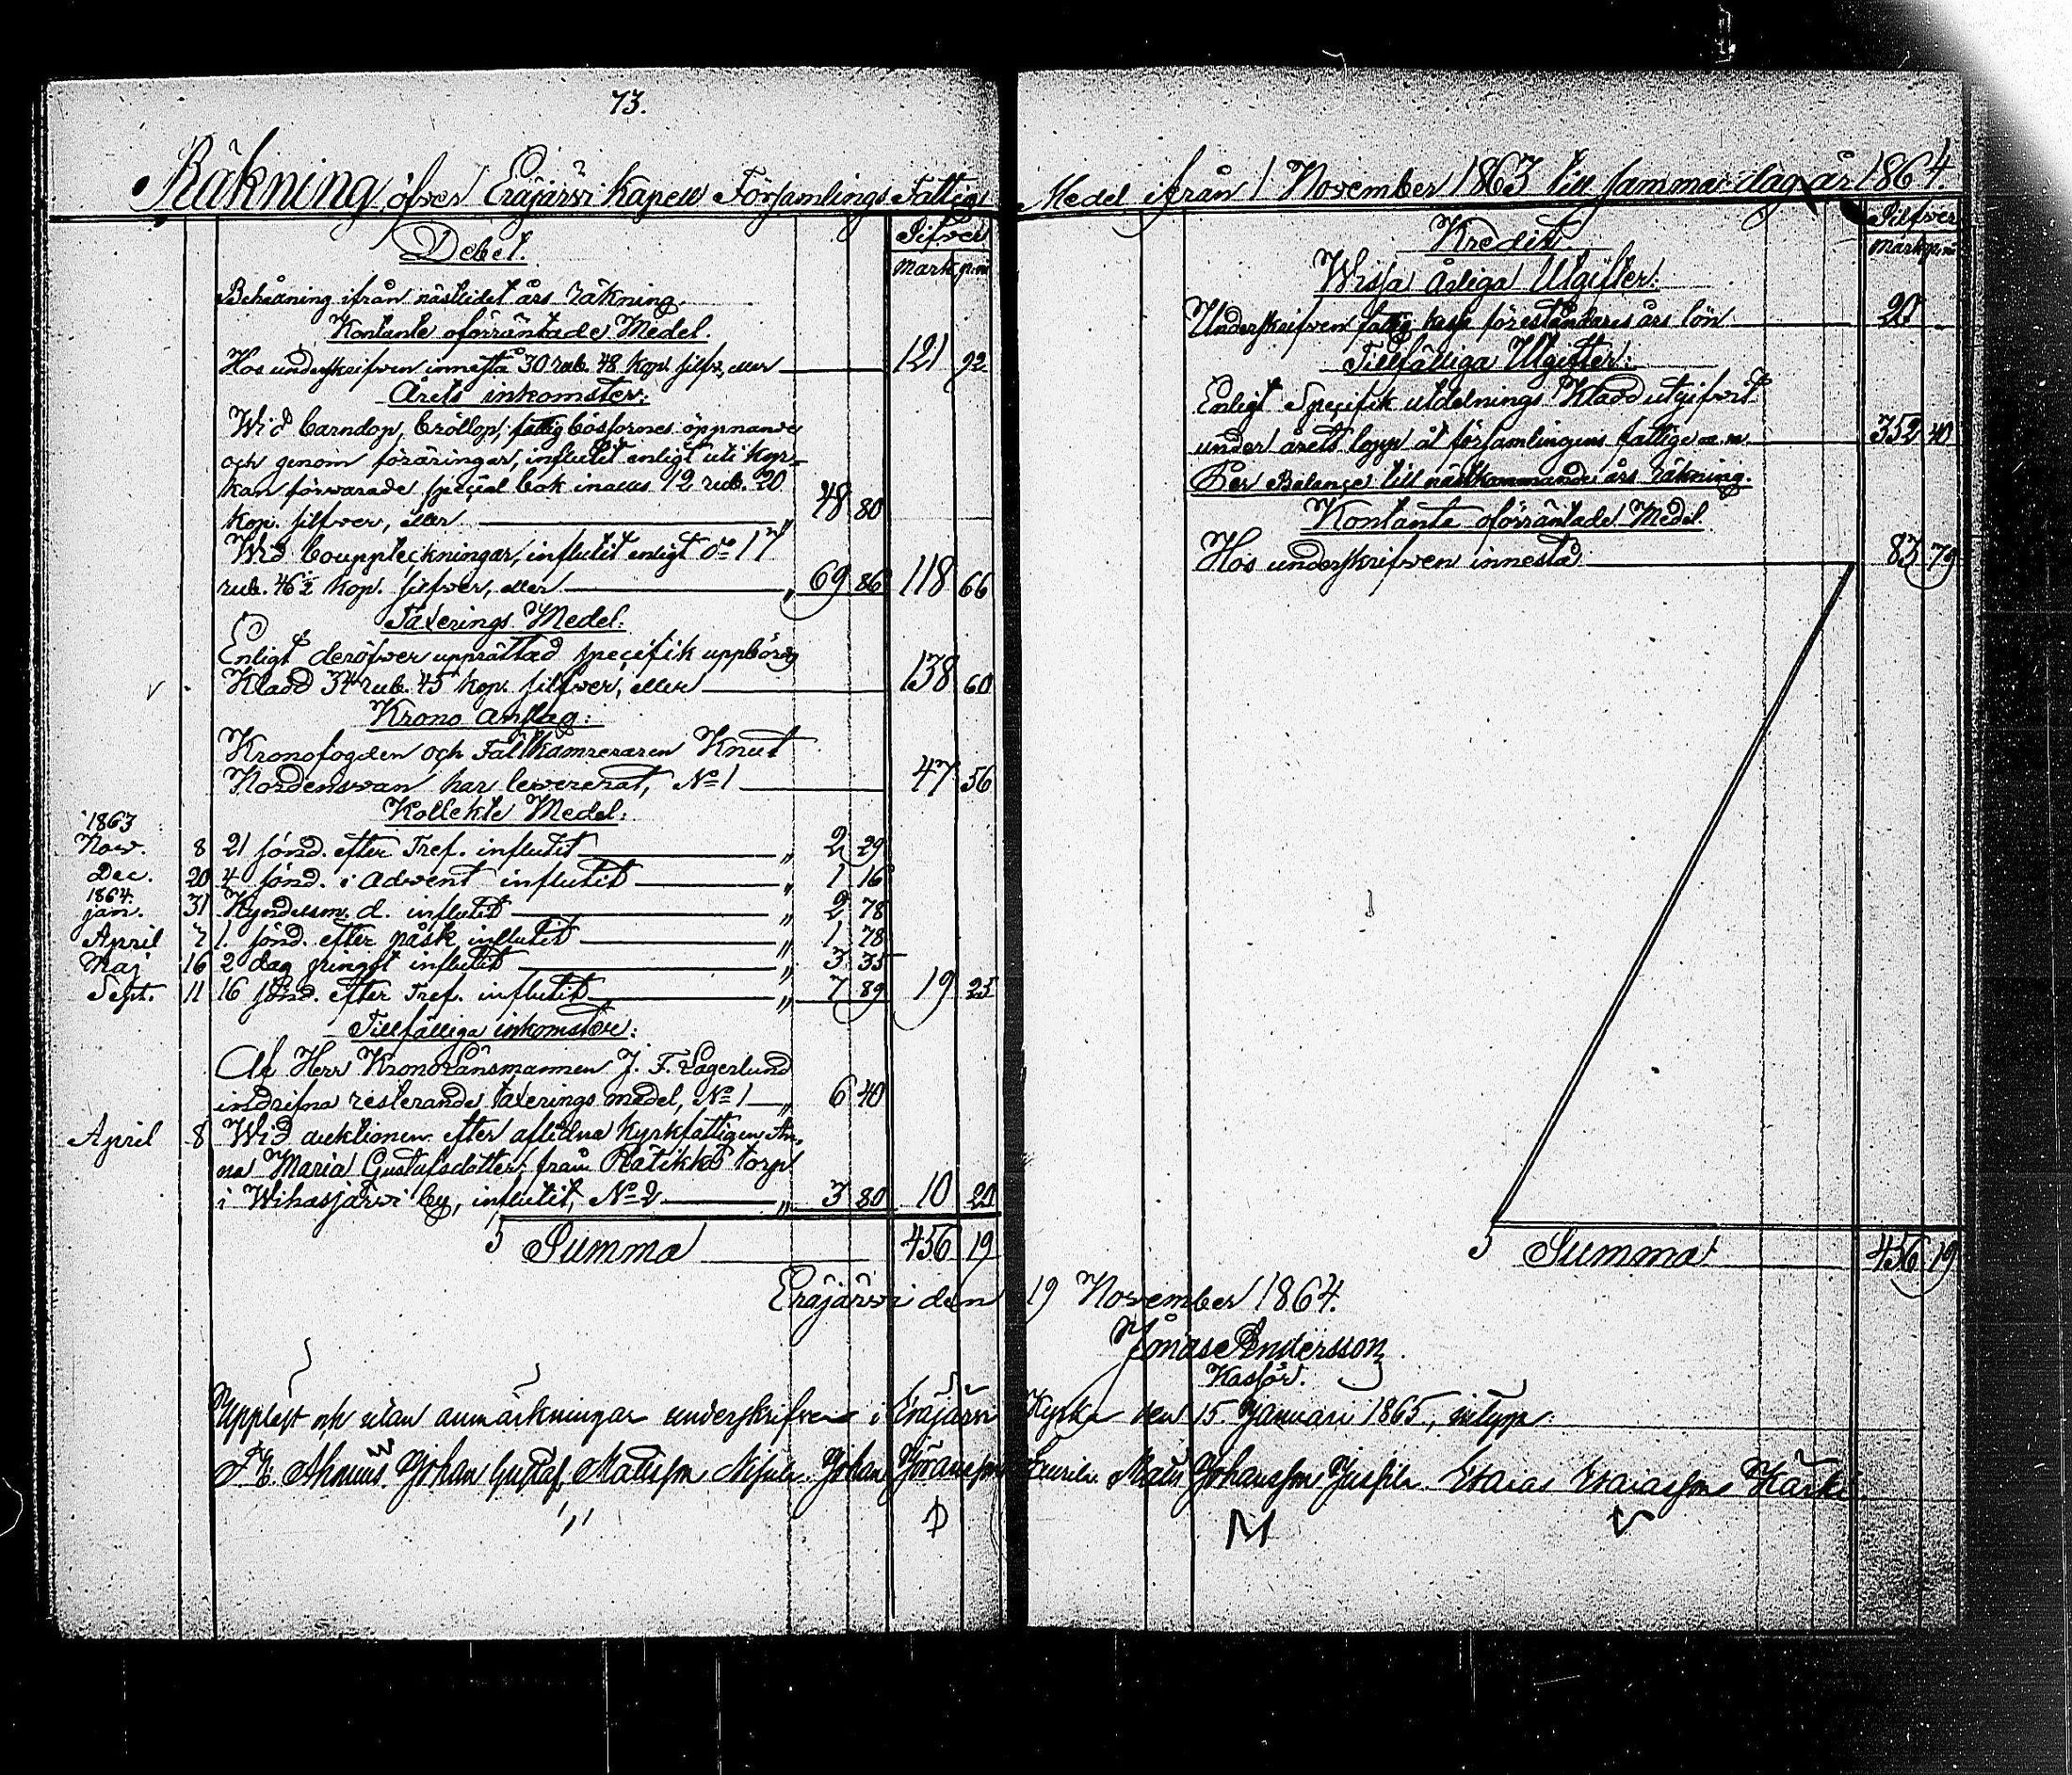 73.
Räkning öfver Eräjärvi Kapell Församlings Fattig
Debet.
Silfver
Mark p:ni
Behåning ifrån nästlidet års räkning.
Kontante oförräntade Medel.
Hos underskrifven innestå 30 rub. 48 kop. silfv., eller 121 92
Årets inkomster:
Wid barndop, bröllop, fattigbösfornes öppnande
och genom föräringar, influtit enligt uti kyr-
kan förwarade special bok inalles 12 rub. 20
kop. silfver, eller " 48 80
Wid bouppteckningar, influtit enligt d:o 17
rub. 46½ kop. silfver, eller " 69 86 118 66
Taxerings Medel:
Enligt deröfwer upprättad specifik uppbörds
Kladd 34 rub. 45 kop. silfver, eller 138 60
Krono anslag:
Kronofogden och Fältkamreraren Knut
Nordenswan har levererat, No 1 47 56
Kollekte Medel:
1863
Nov. 8 21 sönd. efter Tref. influtit " 2 29
Dec. 20 4 sönd. i Advent influtit " 1 16
1864.
jan. 31 Kyndelsm. d. influtit " 2 78
April 7 1. sönd. efter påsk influtit " 1 78
Maj 16 2 dag pingst influtit " 3 35
Sept. 11 16 sönd. efter Tref. influtit " 7 89 19 25
Tillfälliga inkomster:
Af Herr Kronolänsmannen J. F. Lagerlund
indrifna resterande taxerings medel, No 1 " 6 40
April 8 Wid auktionen efter aflidna kyrkfattigen An-
na Maria Gustafsdotter från Rätikkä torp
i Wihasjärvi by, influtit, No 2 " 3 80 10 20
S Summa 456 19
Eräjärvi den
Uppläst och utan anmärkningar underskrifven i Eräjärvi
Johan Gustaf Matsson Johan Göransson
Medel ifrån 1 November 1863 till samma dag år 1864.
Silfver
Mark p:ni
Kredit.
Wissa Årliga Utgifter:
Underskrifven fattig kassa föreståndares års lön 20
Tillfälliga Utgifter:
Enligt Specifik utdelnings Kladd utgifvit
under årets lopp åt församlingens fattige m. m. 352 40
Per Balance till nästkommande års räkning.
Kontante oförräntade Medel
Hos underskrifven innestå 83 79
S Summa 456 19
19 November 1864.
Jonas Andersson
Kassör.
Kyrka den 15 Januari 1865, intyga:
Mats Johansson Esaias Esaiasson Kärki
M